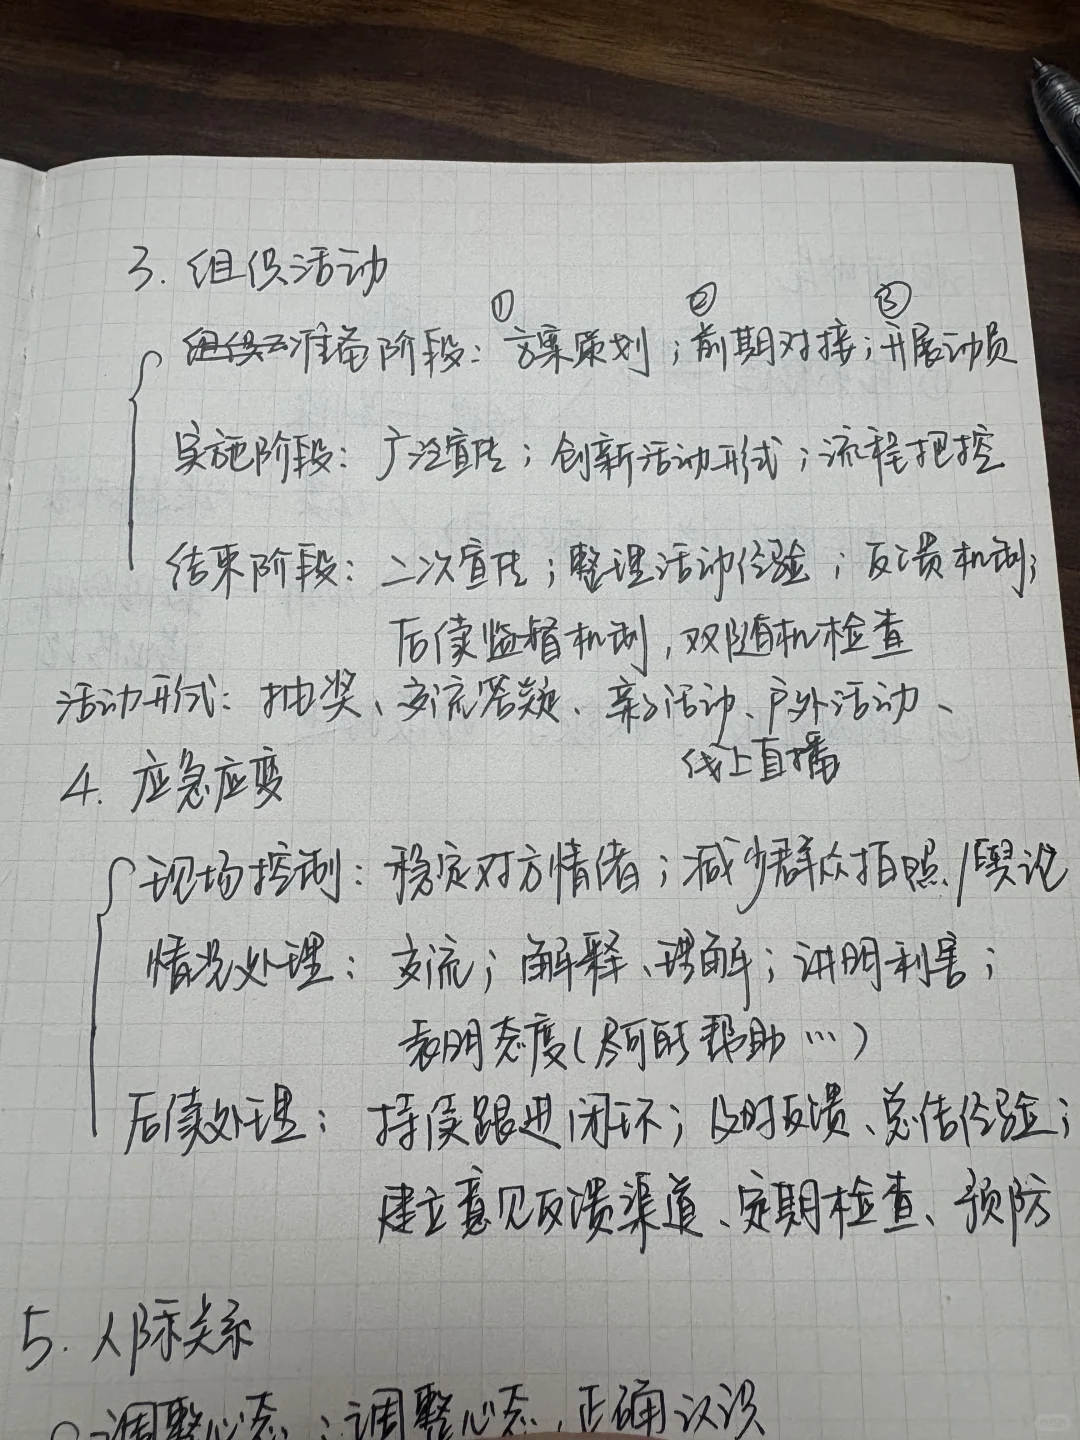 3. 组织活动
① ② ③
准备阶段：方案策划；前期对接；开展动员
实施阶段：广泛宣传；创新活动形式；流程把控
结束阶段：二次宣传；整理活动经验；反馈机制；
后续监督机制，双随机检查
活动形式：抽奖、交流答疑、亲子活动、户外活动、
线上直播
4. 应急应变
现场控制：稳定对方情绪；减少群众拍照/舆论
情况处理：交流；解释、理解；讲明利害；
表明态度（尽可能帮助…）
后续处理：持续跟进闭环；及时反馈、总结经验；
建立意见反馈渠道、定期检查、预防
5. 人际关系
调整心态：调整心态，正确认识